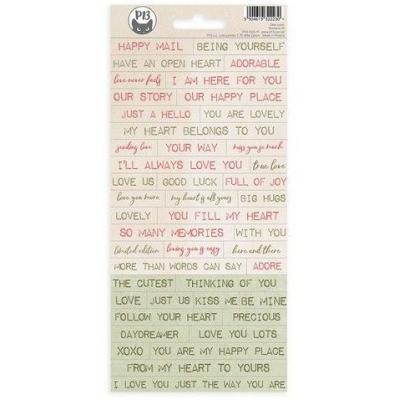 P13
HAPPY MAIL BEING YOURSELF
HAVE AN OPEN HEART ADORABLE
love never fails I AM HERE FOR YOU
OUR STORY OUR HAPPY PLACE
JUST A HELLO YOU ARE LOVELY
MY HEART BELONGS TO YOU
sending love YOUR WAY miss you so much
I'LL ALWAYS LOVE YOU true love
LOVE US GOOD LUCK FULL OF JOY
love you more my heart is all yours BIG HUGS
LOVELY YOU FILL MY HEART
SO MANY MEMORIES WITH YOU
limited edition loving you is easy here and there
MORE THAN WORDS CAN SAY ADORE
THE CUTEST THINKING OF YOU
LOVE JUST US KISS ME BE MINE
FOLLOW YOUR HEART PRECIOUS
DAYDREAMER LOVE YOU LOTS
XOXO YOU ARE MY HAPPY PLACE
FROM MY HEART TO YOURS
I LOVE YOU JUST THE WAY YOU ARE